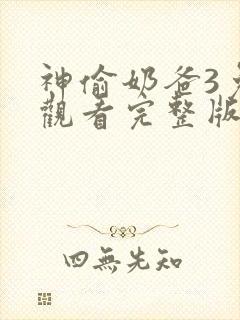 神偷奶爸3
觀看完整版
四無先知